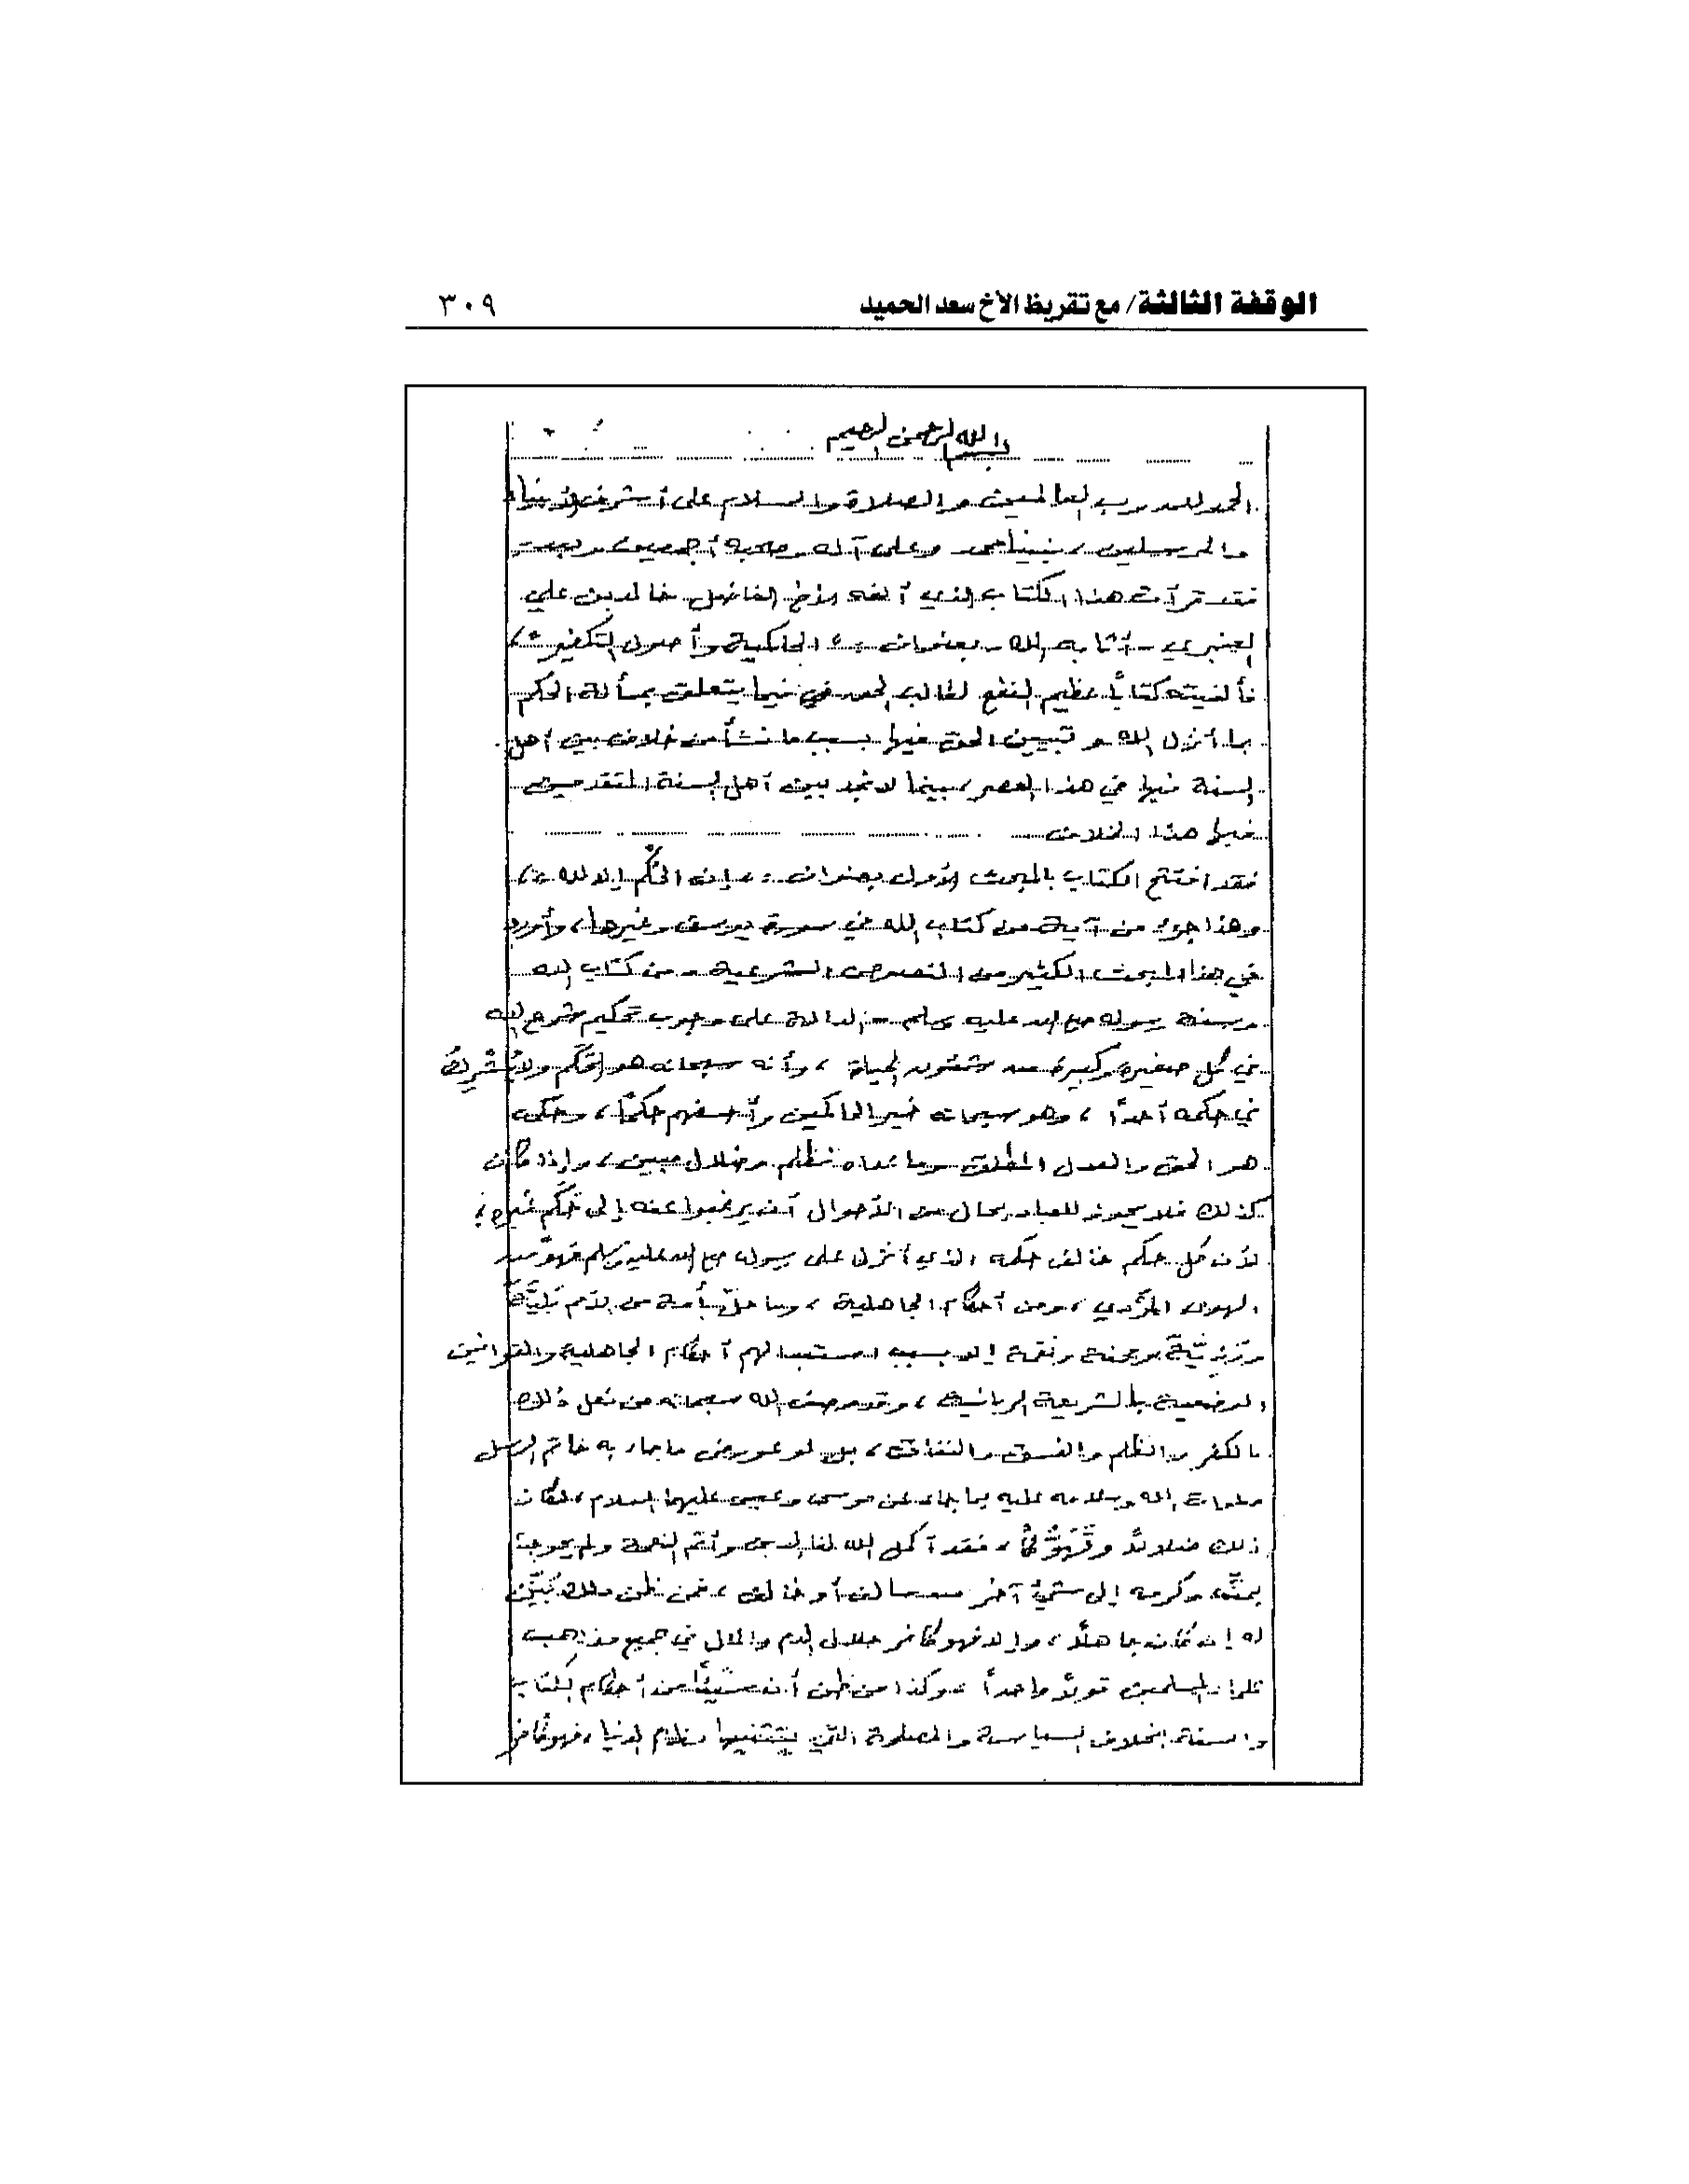 الوقفة الثالثة/ مع تقريظ الأخ سعد الحميد
٣٠٩
بسم الله الرحمن الرحيم
الحمد لله رب العالمين والصلاة والسلام على أشرف الأنبياء
والمرسلين، نبينا محمد وعلى آله وصحبه أجمعين وبعد
فقد قرأت هذا الكتاب الذي ألفه الأخ الفاضل خالد بن علي
العنبري - أثابه الله - بعنوان: « الحاكمية وأصول التكفير »،
فألفيته كتاباً عظيم النفع لطالب الحق في فيما يتعلق بمسألة الحكم
بما أنزل الله و تبيين الحق فيها بسبب ما نشأ من خلاف بين أهل
السنة فيها في هذا العصر، بينما لا نجد بين أهل السنة المتقدمين
فيها هذا الخلاف
فقد افتتح الكتاب بالمبحث الأول بعنوان: « إن الحُكْم إلا لله »،
وهذا جزء من آية من كتاب الله في سورة يوسف وغيرها، وأورد
في هذا المبحث الكثير من النصوص الشرعية - من كتاب الله
وسنة رسوله صلى الله عليه وسلم - الدالة على وجوب تحكيم شرع الله
في كل صغيرة وكبيرة من شئون الحياة، وأنه سبحانه هو الحَكَم ولا يُشْرِكُ
في حكمه أحداً، وهو سبحانه خير الحاكمين وأحسنهم حكمًا، وحكمه
هو الحق والعدل المطلق وما عداه فظلم وضلال مبين، وإذا كان
كذلك فلا يجوز للعباد بحال من الأحوال أن يرغبوا عنه إلى حَكَم غيره؛
لأن كل حكم خالف حكمه الذي أنزل على رسوله صلى الله عليه وسلم فهو من
الهوى المُرْدي، ومن أحكام الجاهلية، وما حلّ بأمة من الأمم بَليَّةٌ
ورَزِيَّةٌ ومحنة ونقمة إلا بسبب استبدالهم أحكام الجاهلية والقوانين
الوضعية بالشريعة الربانية، وقد وصف الله سبحانه من فعل ذلك
بالكفر والظلم والفسق والنفاق، بل لو عورض ما جاء به خاتم الرسل
صلوات الله وسلامه عليه بما جاء عن موسى وعيسى عليهما السلام، لكان
ذلك ضلالاً و ، فقد أكمل الله لنا الدين وأتم النعمة ولم يحوجنا
بمنّه وكرمه إلى شيءٍ آخر مما سلف أو خالف، فمن ظن ذلك بُيّن
له إن كان جاهلاً، وإلا فهو كافر حلال الدم والمال في جميع مذاهب
علماء المسلمين قولاً واحداً، وكذا من ظن أن شيئاً من أحكام الكتاب
والسنة بخلاف السياسة والمصلحة التي يقتضيها نظام الدنيا، فهو كافر